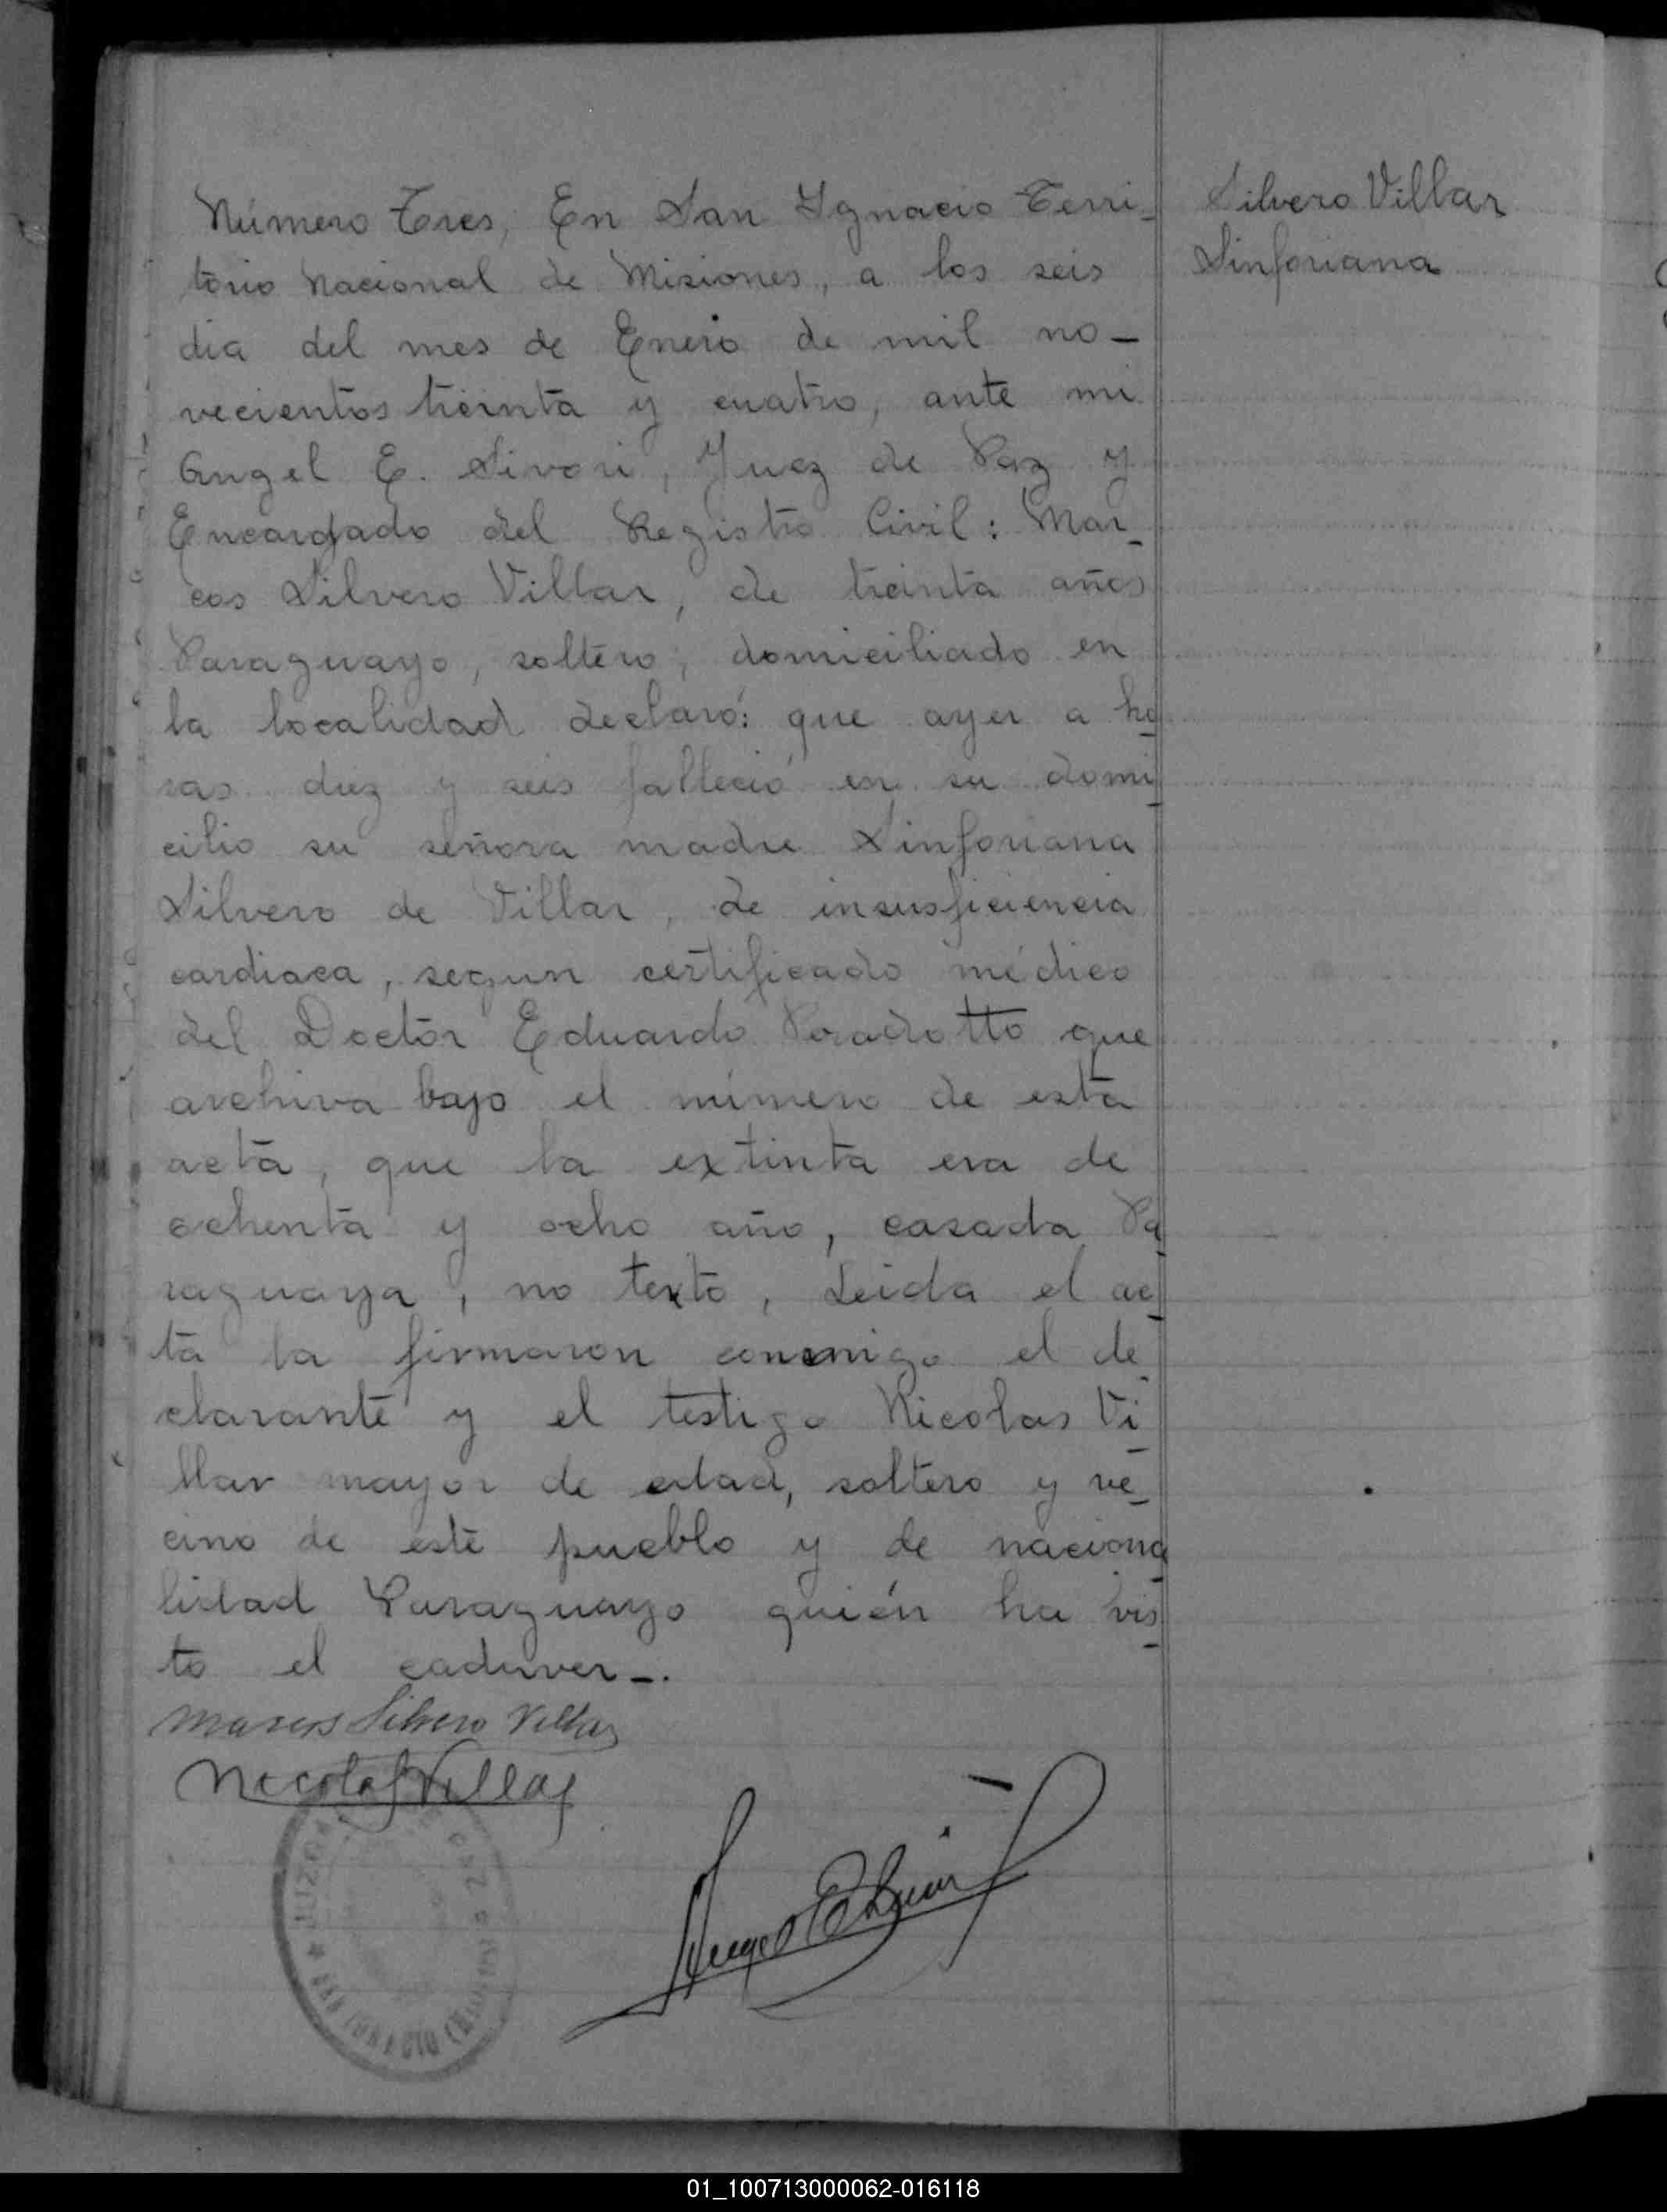 Número Tres, En San Ygnacio Terri-
torio Nacional de Misiones, a los seis
dia del mes de Enero de mil no-
vecientos treinta y cuatro, ante mi
Angel E. Sivori, Juez de Paz y
Encargado del Registro Civil: Mar-
cos Silvero Villar, de treinta años
Paraguayo, soltero, domiciliado en
la localidad declaró: que ayer a ho
ras diez y seis falleció en su domi
cilio su señora madre Sinforiana
Silvero de Villar, de insusficiencia
cardiaca, segun certificado médico
del Doctor Eduardo que
archiva bajo el número de esta
acta, que la extinta era de
ochenta y ocho año, casada Pa
raguaya, no texto, Leida el ac
ta la firmaron conmigo el de
clarante y el testigo Nicolas Vi
llar mayor de edad, soltero y ve-
cino de este pueblo y de naciona
lidad Paraguayo quién ha vis
to el cadaver-.
Marcos Silvero Villar
Nicolas Villar
Angel E Sivori
JUZGA PAZ
★ SAN IGNACIO
Silvero Villar
Sinforiana
01_100713000062-016118